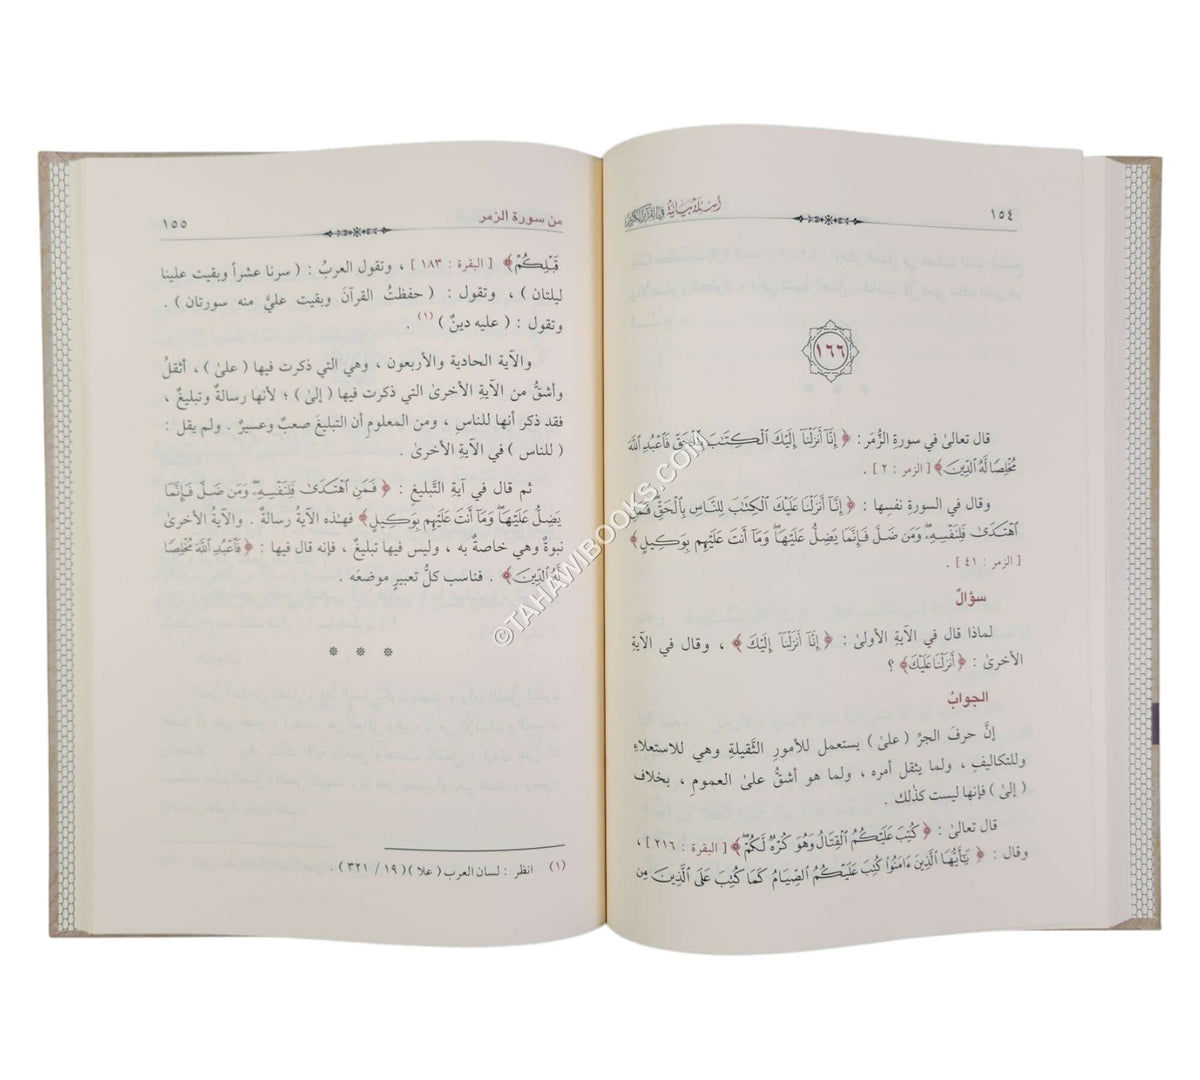 ١٥٤
أسئلة بيانية في القرآن الكريم
١٦٦
قال تعالىٰ في سورة الزُّمَر : ﴿ إِنَّآ أَنزَلْنَآ إِلَيْكَ ٱلْكِتَٰبَ بِٱلْحَقِّ فَٱعْبُدِ ٱللَّهَ
مُخْلِصًا لَّهُ ٱلدِّينَ ﴾ [ الزمر : ٢ ] .
وقال في السورة نفسِها : ﴿ إِنَّآ أَنزَلْنَا عَلَيْكَ ٱلْكِتَٰبَ لِلنَّاسِ بِٱلْحَقِّ فَمَنِ
ٱهْتَدَىٰ فَلِنَفْسِهِۦ وَمَن ضَلَّ فَإِنَّمَا يَضِلُّ عَلَيْهَا وَمَآ أَنتَ عَلَيْهِم بِوَكِيلٍ ﴾
[ الزمر : ٤١ ] .
سؤالٌ
لماذا قال في الآيةِ الأولىٰ : ﴿ إِنَّآ أَنزَلْنَآ إِلَيْكَ ﴾ ، وقال في الآيةِ
الأخرىٰ : ﴿ أَنزَلْنَا عَلَيْكَ ﴾ ؟
الجوابُ
إنَّ حرفَ الجرِّ ( علىٰ ) يستعمل للأمورِ الثَّقيلةِ وهي للاستعلاءِ
وللتكاليفِ ، ولما يثقل أمره ، ولما هو أشقُّ علىٰ العمومِ ، بخلاف
( إلىٰ ) فإنها ليست كذٰلك .
قال تعالىٰ : ﴿ كُتِبَ عَلَيْكُمُ ٱلْقِتَالُ وَهُوَ كُرْهٌ لَّكُمْ ﴾ [ البقرة : ٢١٦ ] ،
وقال : ﴿ يَٰٓأَيُّهَا ٱلَّذِينَ ءَامَنُوا۟ كُتِبَ عَلَيْكُمُ ٱلصِّيَامُ كَمَا كُتِبَ عَلَى ٱلَّذِينَ مِن
من سورة الزمر
١٥٥
قَبْلِكُمْ ﴾ [ البقرة : ١٨٣ ] ، وتقول العربُ : ( سرنا عشراً وبقيت علينا
ليلتان ) ، وتقول : ( حفظتُ القرآنَ وبقيت عليَّ منه سورتان ) .
وتقول : ( عليه دينٌ ) (١) .
والآية الحادية والأربعون ، وهي التي ذكرت فيها ( علىٰ ) ، أثقلُ
وأشقُّ من الآيةِ الأخرىٰ التي ذكرت فيها ( إلىٰ ) ؛ لأنها رسالةٌ وتبليغٌ ،
فقد ذكر أنها للناسِ ، ومن المعلومِ أن التبليغَ صعبٌ وعسيرٌ . ولم يقل :
( للناس ) في الآيةِ الأخرىٰ .
ثم قال في آيةِ التَّبليغِ : ﴿ فَمَنِ ٱهْتَدَىٰ فَلِنَفْسِهِۦ وَمَن ضَلَّ فَإِنَّمَا
يَضِلُّ عَلَيْهَا وَمَآ أَنتَ عَلَيْهِم بِوَكِيلٍ ﴾ فهٰذه الآيةُ رسالةٌ . والآيةُ الأخرىٰ
نبوةٌ وهي خاصةٌ به ، وليس فيها تبليغٌ ، فإنه قال فيها : ﴿ فَٱعْبُدِ ٱللَّهَ مُخْلِصًا
لَّهُ ٱلدِّينَ ﴾ . فناسب كلُّ تعبيرٍ موضعَه .
(١) انظر : لسان العرب ( علا )( ١٩ / ٣٢١ ) .
©TAHAWIBOOKS.COM